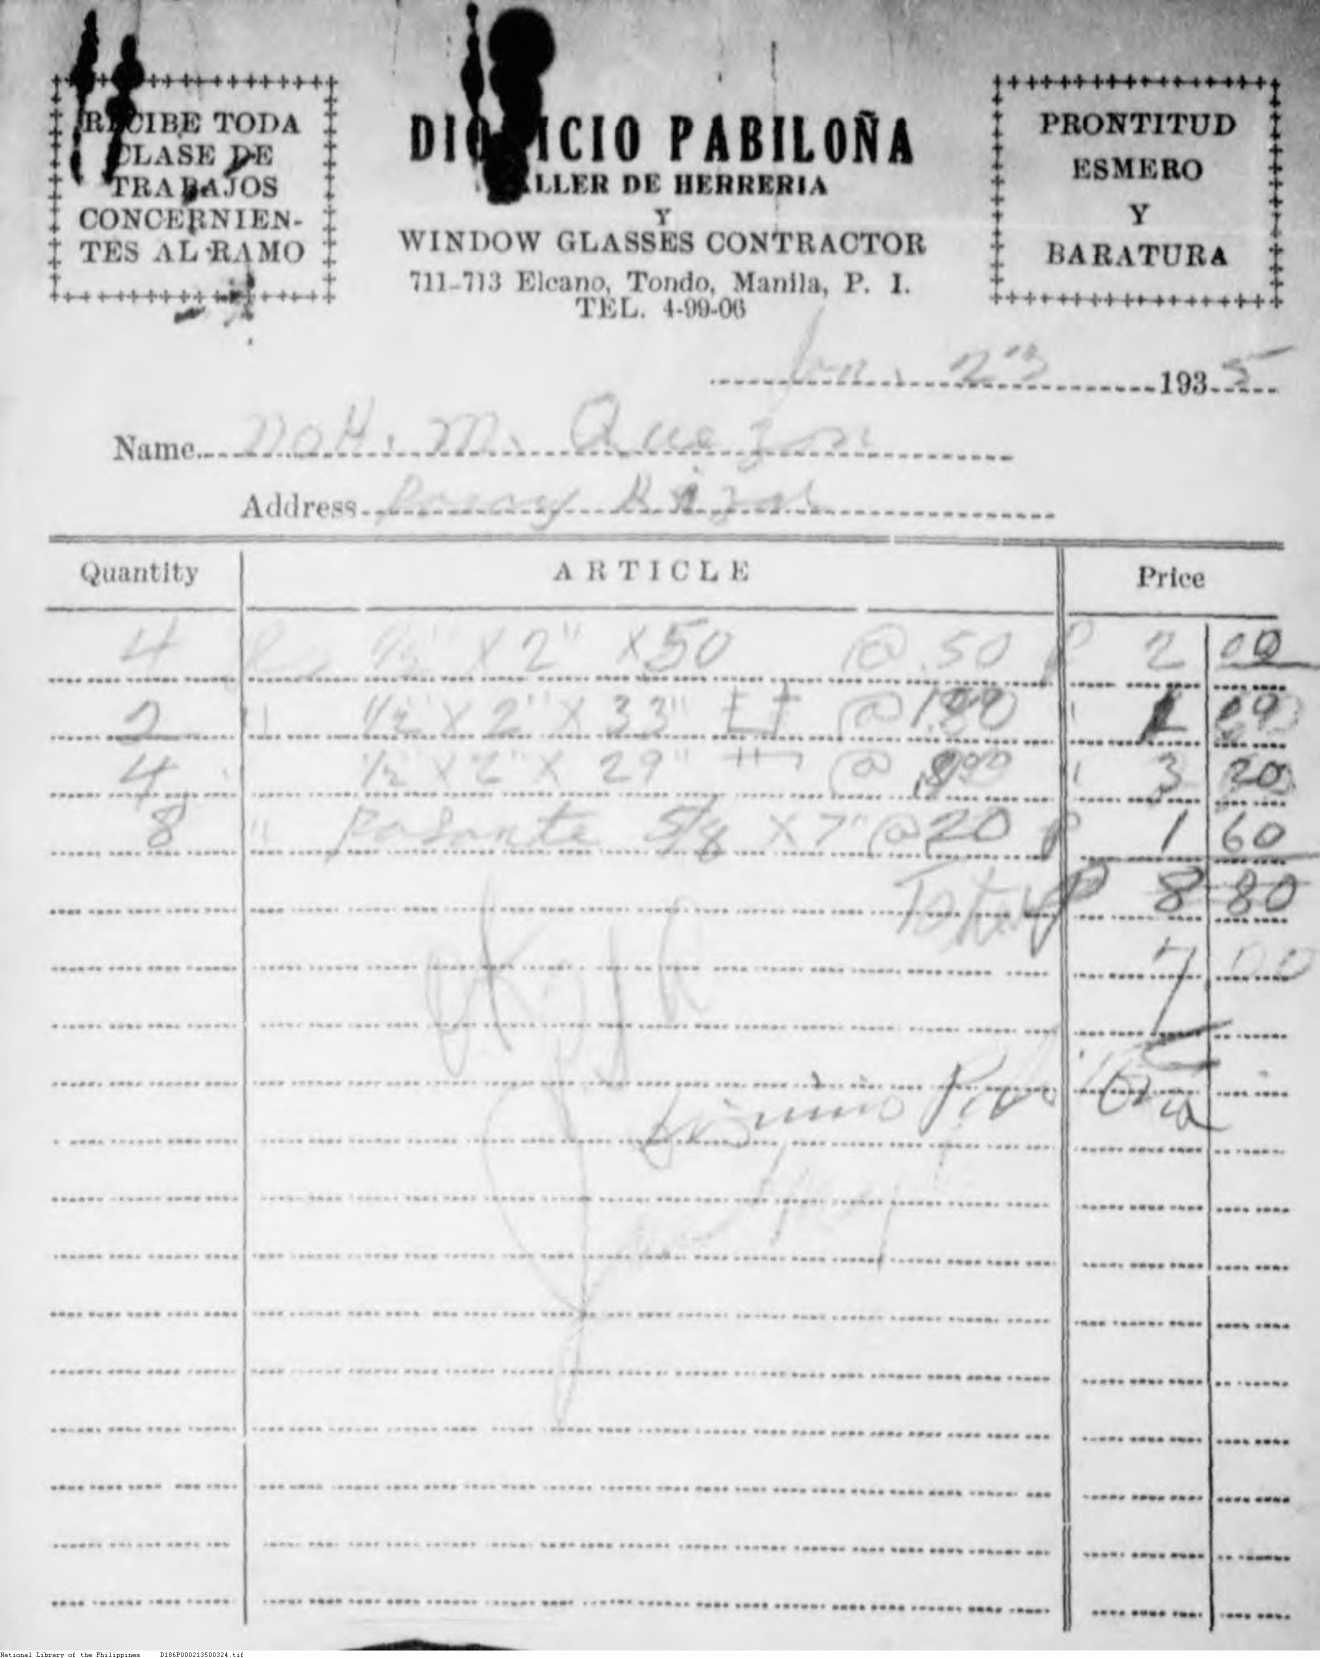 RECIBE TODA
CLASE DE
TRABAJOS
CONCERNIEN-
TES AL RAMO
DIONICIO PABILOÑA
TALLER DE HERRERIA
Y
WINDOW GLASSES CONTRACTOR
711-713 Elcano, Tondo, Manila, P. I.
TEL. 4-99-06
PRONTITUD
ESMERO
Y
BARATURA
Jan. 23 1935
Name M. Quezon
Address Pasay Rizal
Quantity ARTICLE Price
4 1/2" X 2" X 50 @ .50 P 2 00
2 " 1/2" X 2" X 33" @ 1
4 1/2" X 2" X 29" @ 3 20
8 " Pasante 5/8 X 7" @ 20 P 1 60
Total P 8 80
7 00
National Library of the Philippines D186P000213500324.tif